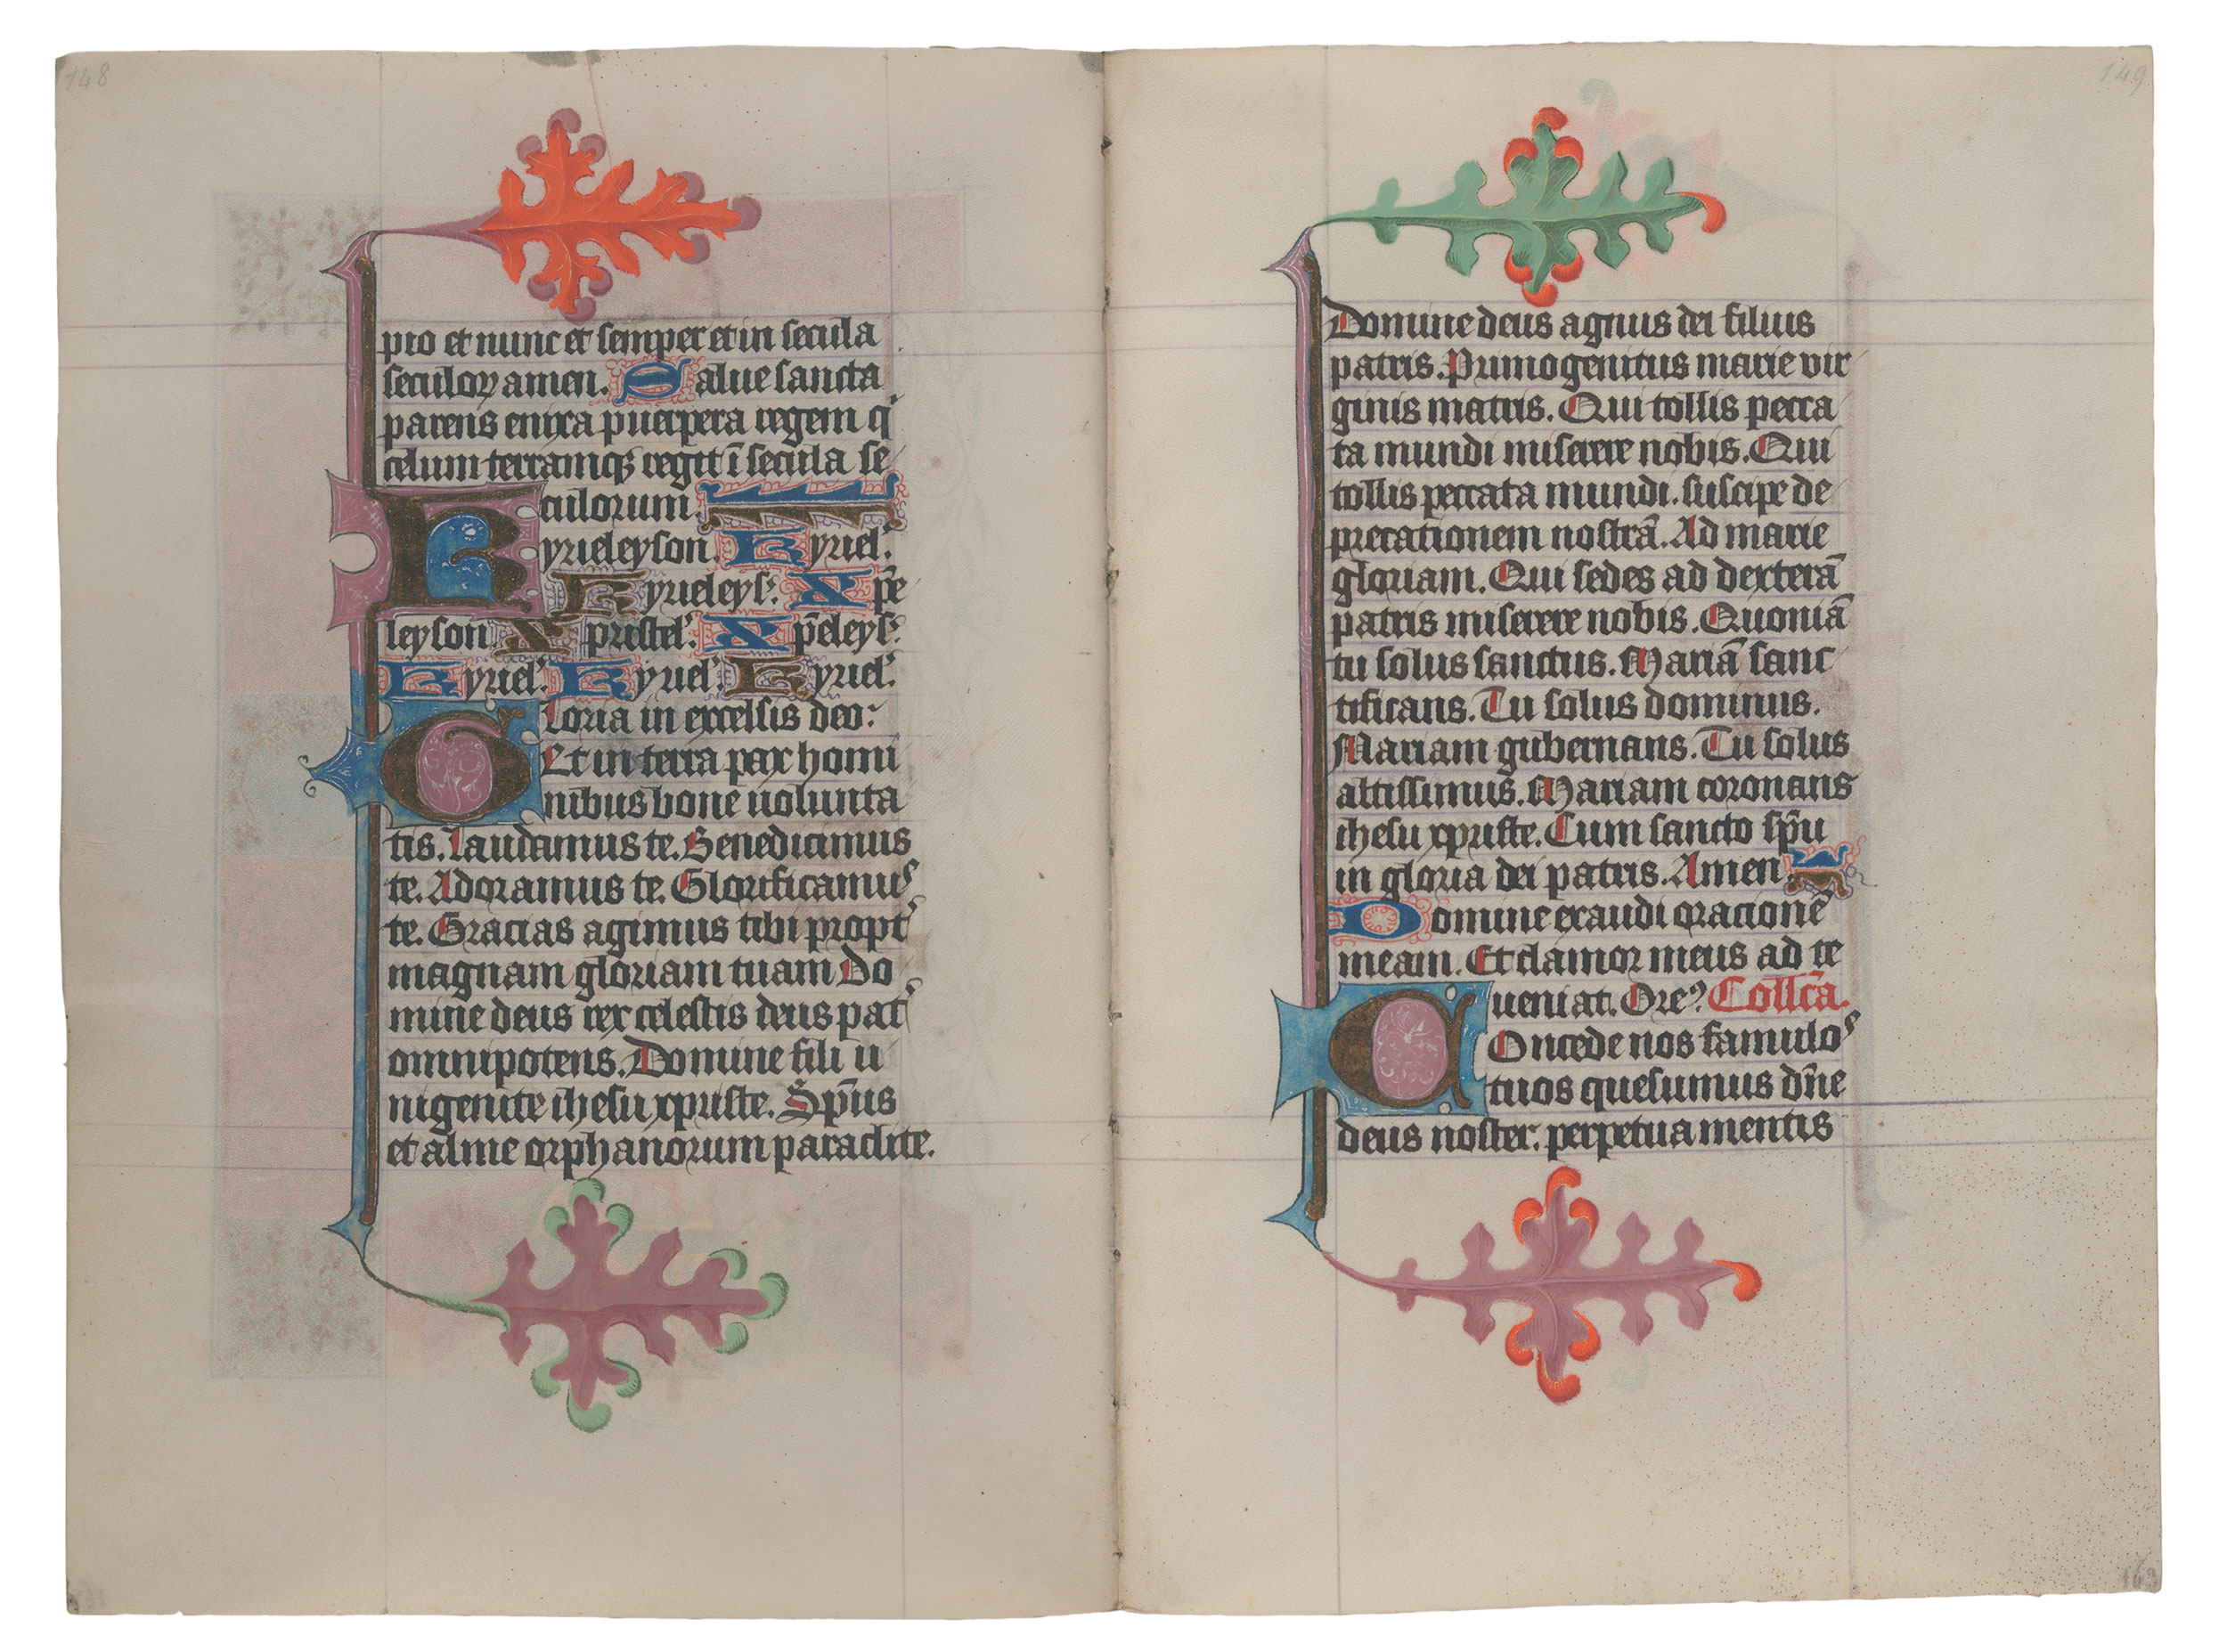 148
pio et nunc et semper et in secula
seculoꝝ amen. Salue sancta
parens enixa puerpera regem q̇
celum terramqꝫ regit ī secula se
culorum.
Kyrieleyson. Kyriel'.
Kyrieleys'. Xp̄e
leyson. Xpristel'. Xp̄eleys'.
Kyriel'. Kyriel'. Kyriel'.
Gloria in excelsis deo.
Et in terra pax homi
nibus bone uolunta
tis. Laudamus te. Benedicimus
te. Adoramus te. Glorificamus
te. Gracias agimus tibi propt'
magnam gloriam tuam Do
mine deus rex celestis deus pat'
omnipotens. Domine fili u
nigenite ihesu xpriste. Sp̄us
et alme orphanorum paraclite.
149
Domine deus agnus dei filius
patris. Primogenitus marie vir
ginis matris. Qui tollis pecca
ta mundi miserere nobis. Qui
tollis peccata mundi. suscipe de
precationem nostrā. Ad marie
gloriam. Qui sedes ad dexterā
patris miserere nobis. Quoniā
tu solus sanctus. Mariā sanc
tificans. Tu solus dominus.
Mariam gubernans. Tu solus
altissimus. Mariam coronans
ihesu xpriste. Cum sancto sp̄u
in gloria dei patris. Amen.
Domine exaudi oracionē
meam. Et clamor meus ad te
ueniat. Ore'. Collc̄a.
Concede nos famulos
tuos quesumus dn̄e
deus noster. perpetua mentis